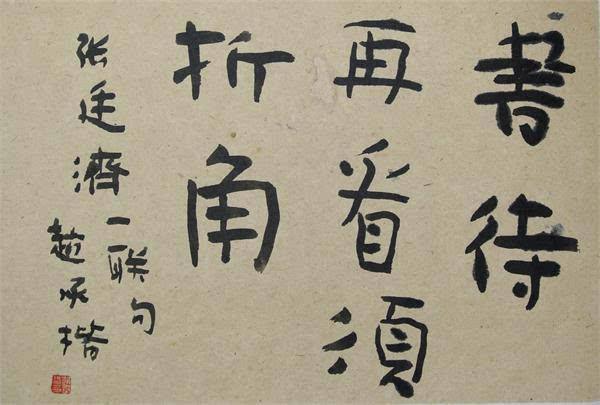 書待
再看須
折角
張廷濟一联句
趙承楷